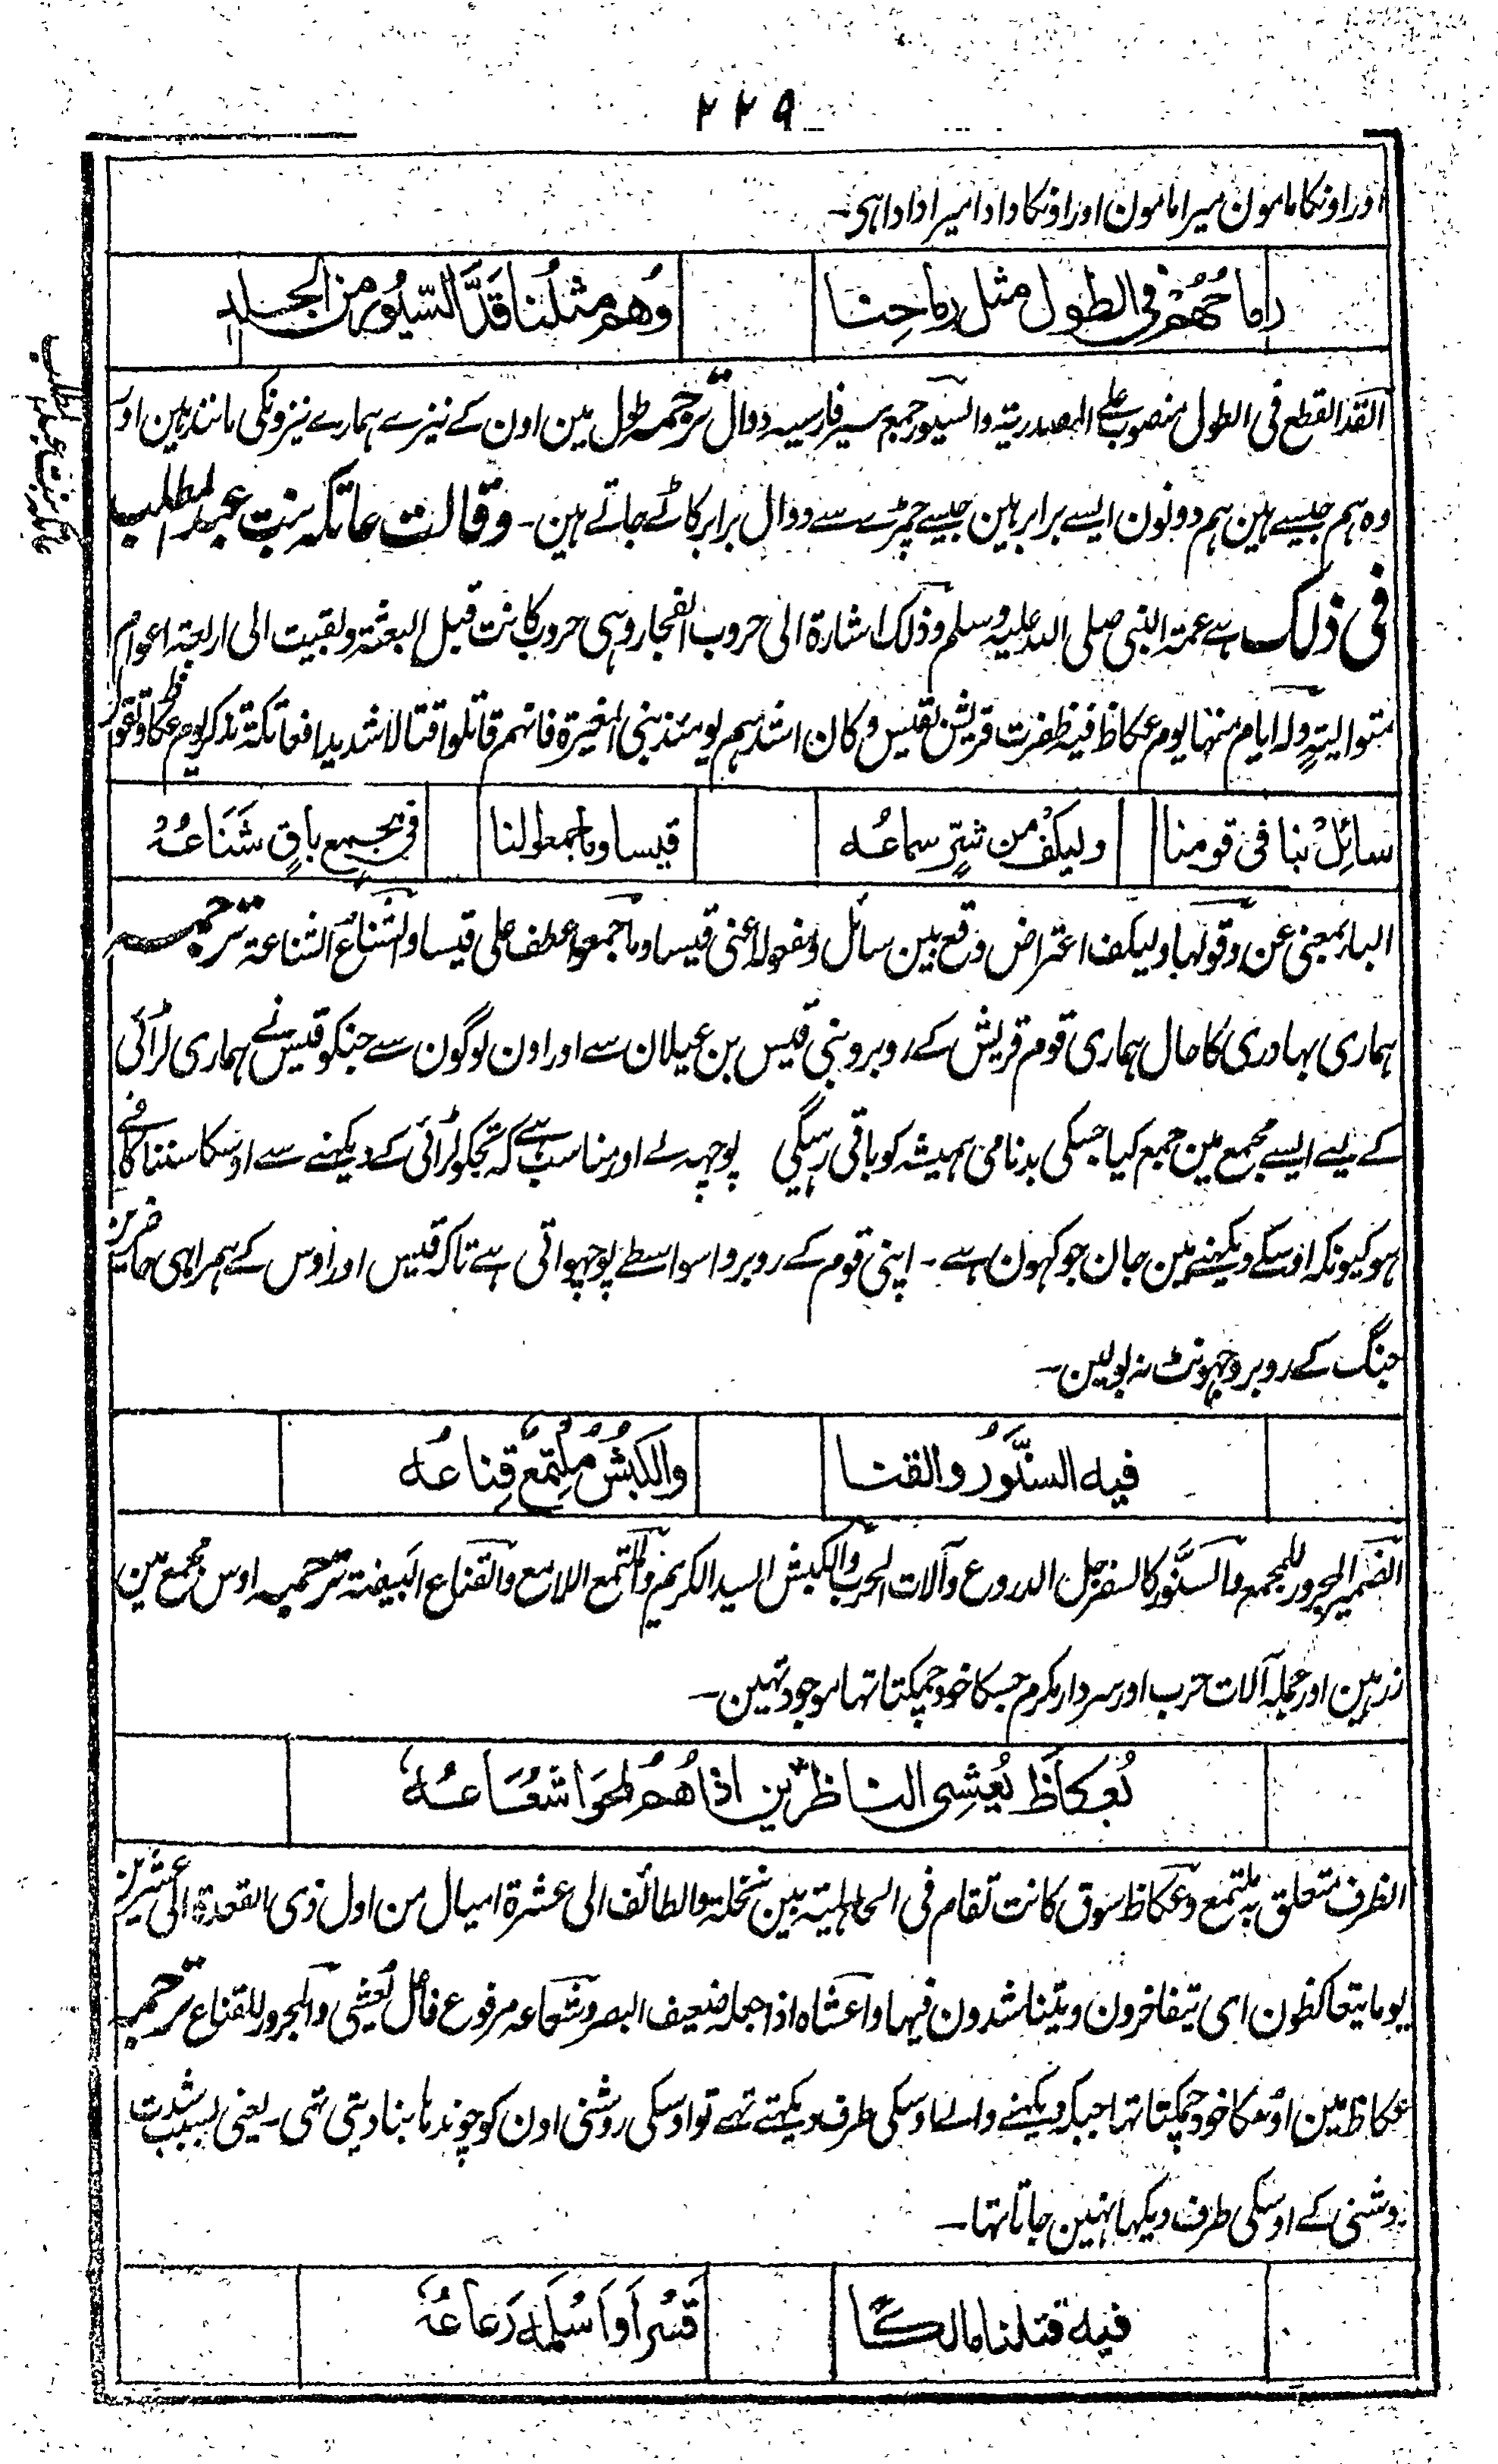 ٢٢٩
اور اونکا مامون میرا مامون اور اونکا دادا میرا دادا ہی۔
رماحُهُمْ فی الطول مثل رماحِنا وُهم مثلُنا قَدَّ السّيُور من الجلدِ
القد القطع فی الطول منصوب علے المصدریۃ والسیور جمع سیر فارسیہ دوال ترجمہ طول مین اون کے نیزے ہمارے نیزونکی مانند ہین اور
وہ ہم جیسے ہین ہم دونون ایسے برابر ہین جیسے چمڑے سے دوال برابر کاٹے جاتے ہین۔ وقالت عاتکہ بنت عبد المطلب
عاتکہ بنت عبد المطلب
فی ذلک ہے عمۃ النبی صلی اللہ علیہ وسلم وذلک اشارۃ الی حروب الفجار وہی حروب کانت قبل البعثۃ وبقیت الی اربعۃ اعوام
متوالیۃٍ ولہ ایام منہا یوم عکاظ فیہ ظفرت قریش بقیس وکان اشدہم یومئذ بنی المغیرۃ فانہم قاتلوا قتالا شدیدا فعاتکۃ تذکر یوم عکاظ وتقول
سائِلْ بنا فی قومنا ولیکفِ من شرٍّ سماعُه قیسا وما جمعوا لنا فی مجمعٍ باقٍ شَنَاعُهْ
الباء بمعنی عن وقولہا ولیکف اعتراض وقع بین سائل ومفعولہ اعنی قیسا وما جمعوا عطف علی قیسا والشناع الشناعۃ ترجمہ
ہماری بہادری کا حال ہماری قوم قریش کے روبرو بنی قیس بن عیلان سے اور اون لوگون سے جنکو قیس نے ہماری لڑائی
کے لیے ایسے مجمع مین جمع کیا جسکی بدنامی ہمیشہ کو باقی رہیگی پوچہہ لے اور مناسب ہے کہ تجکو لڑائی کے دیکہنے سے اوسکا سننا کافی
ہو کیونکہ اوسکے دیکہنے مین جان جوکہون ہے۔ اپنی قوم کے روبرو اسواسطے پوچہواتی ہے تاکہ قیس اور اوس کے ہمراہی حاضرین
جنگ کے روبرو جہونٹ نہ بولین۔
فیه السنَّوَّرُ والقنا والکبشُ مُلتمعٌ قِناعُه
الضمیر المجرور للمجمع والسنّور کالسفرجل الدروع وآلات الحرب والکبش السید الکریم والملتمع اللامع والقناع البیضۃ ترجمہ اوس مجمع مین
زرہین اور جملہ آلات حرب اور سردار مکرم جسکا خود چمکتا تہا موجود تہین۔
بُعکاظَ یُعشِی الناظرین اذا هُمُ لمحوا شُعَاعُهُ
الظرف متعلق بہ ملتمع وعکاظ سوق کانت تقام فی الجاہلیۃ بین نخلۃ والطائف الی عشرۃ امیال من اول ذی القعدۃ الی عشرین
یوما یتعاکظون ای یتفاخرون ویتناشدون فیہا واعشاہ اذا جعلہ ضعیف البصر وشعاعہ مرفوع فاعل یعشی والمجرور للقناع ترجمہ
عکاظ مین اوسکا خود چمکتا تہا جبکہ دیکہنے والے اوسکی طرف دیکہتے تہے تو اوسکی روشنی اون کو چوندہا بنا دیتی تہی۔ یعنی بسبب شدت
روشنی کے اوسکی طرف دیکہا نہین جاتا تہا۔
فیه قتلنا مالکًا قَسْراً وَاَسْلَمَه رَعاعُهُ